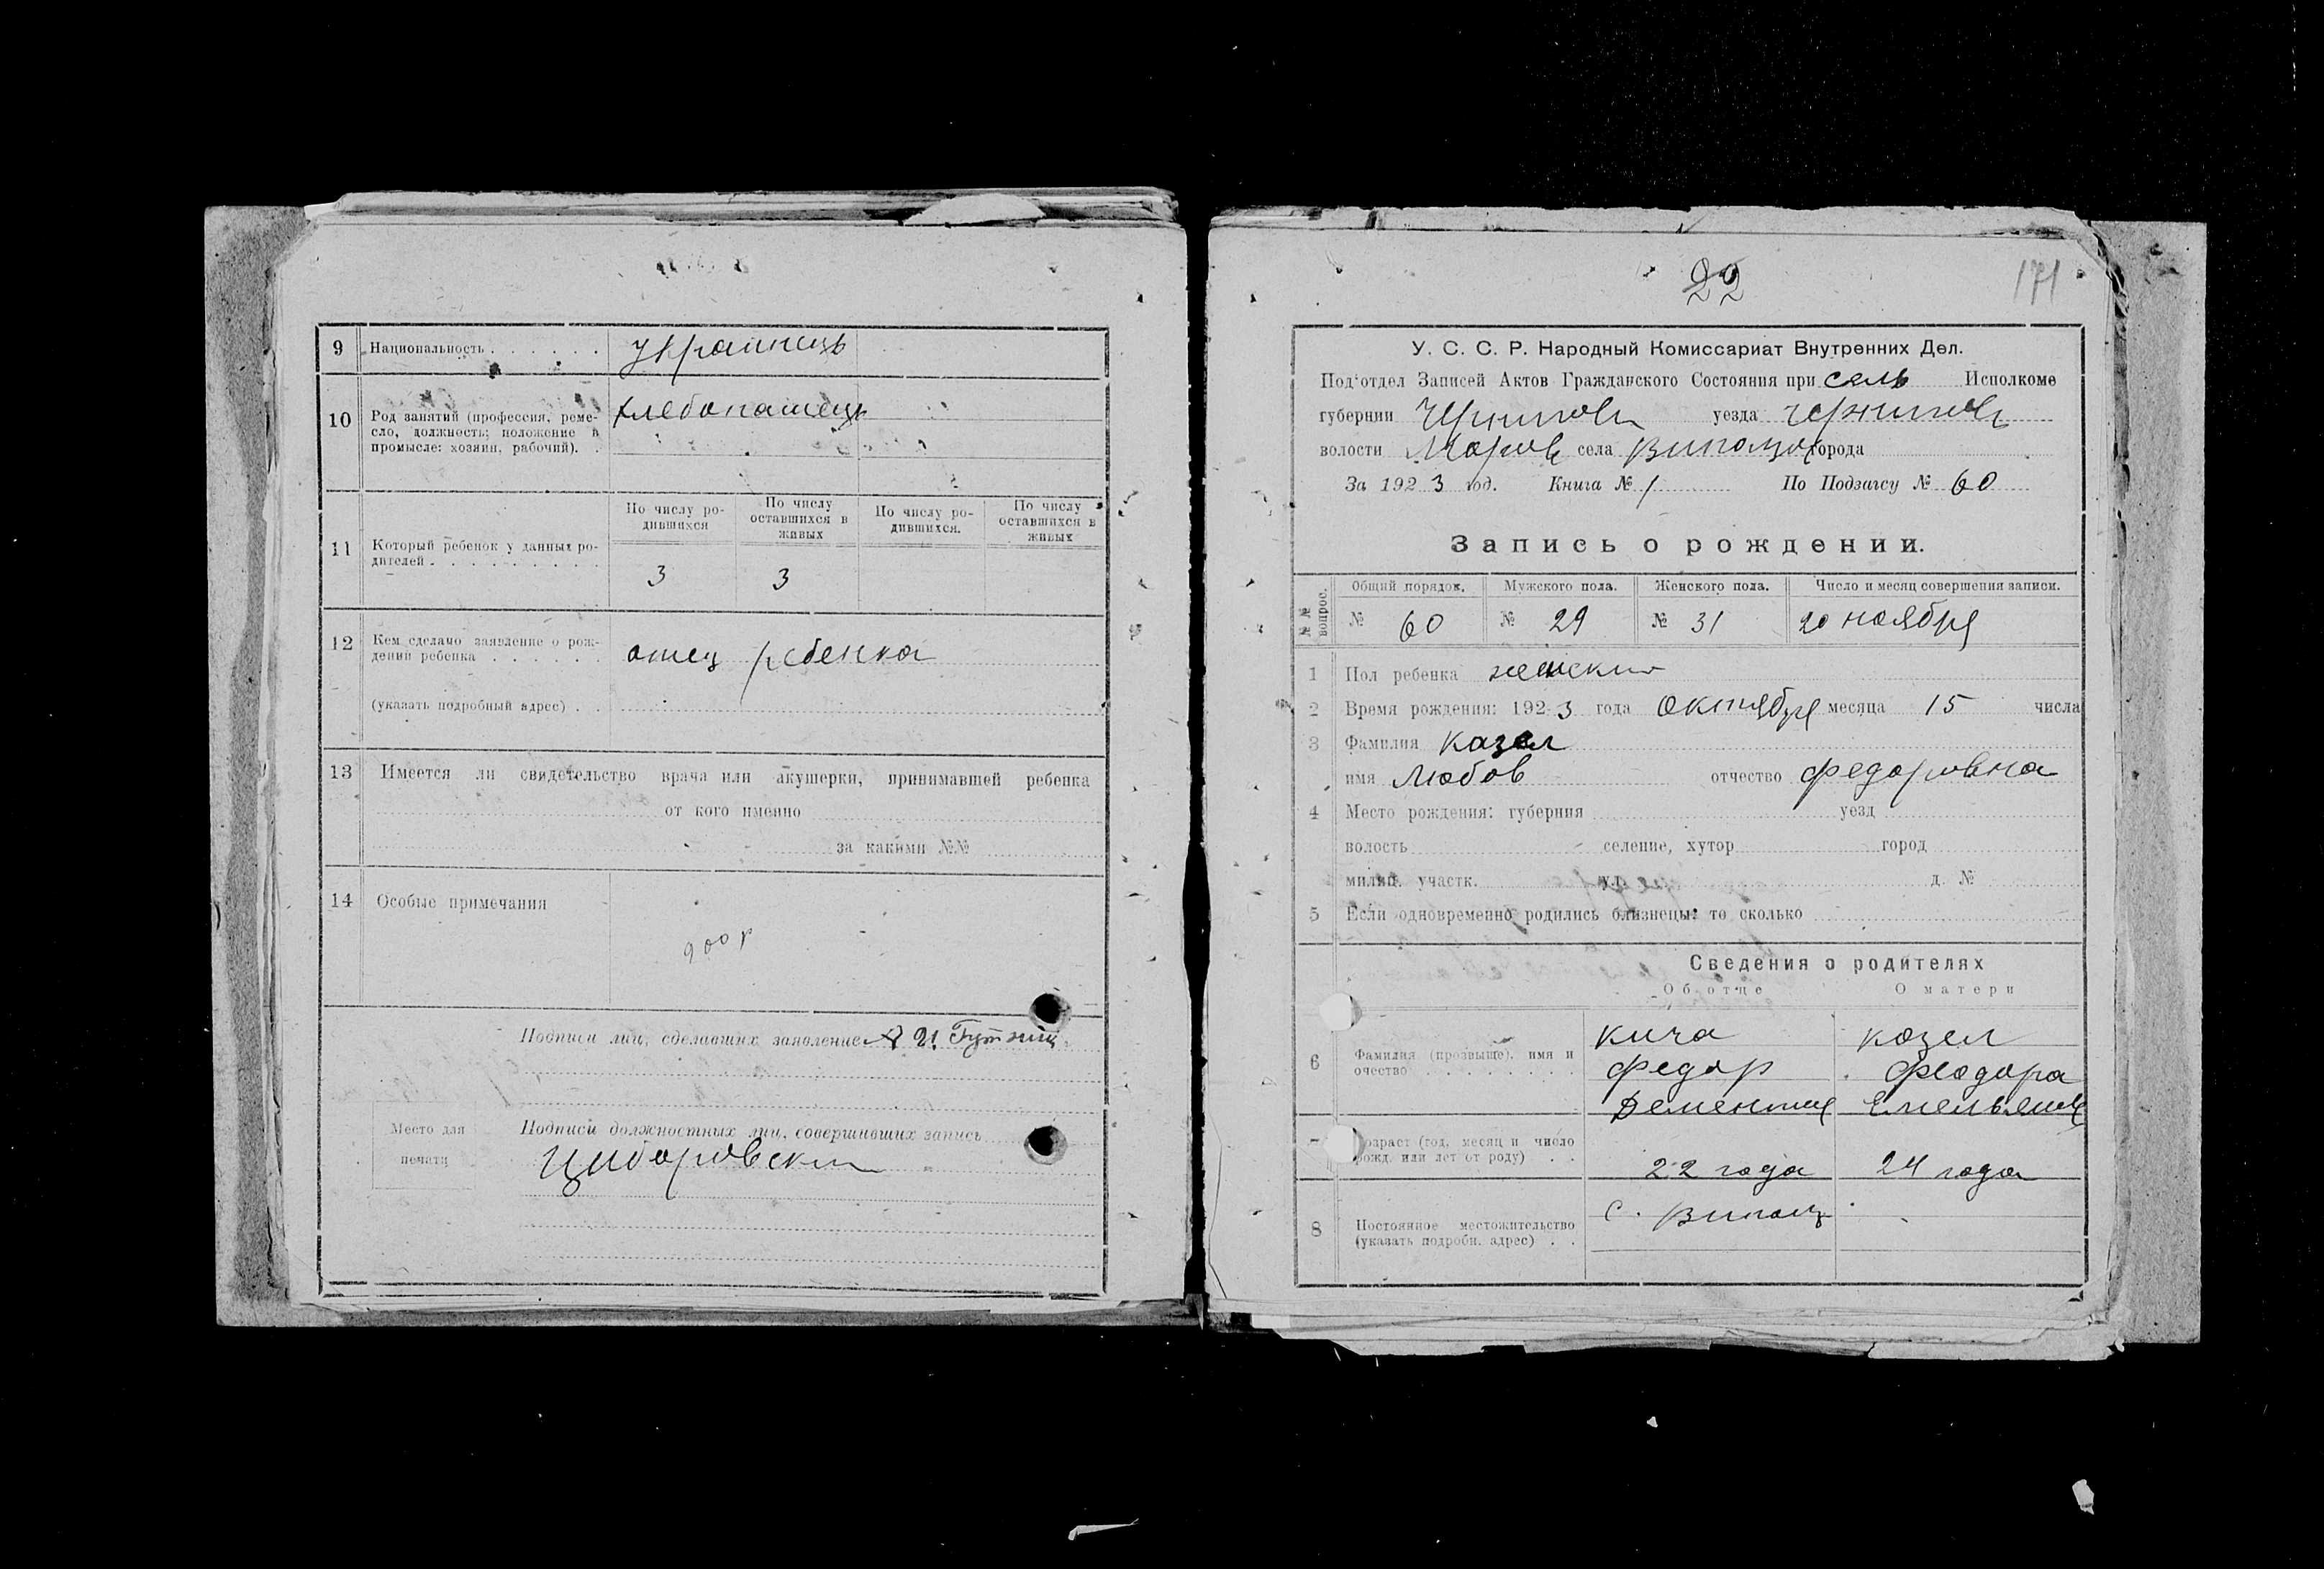 9 Национальность . . . . . . украинець
10 Род занятий (профессия, реме-
сло, должность; положение в
промысле: хозяин, рабочий). . хлебопашець
11 Который ребенок у данных ро-
дителей . . . . . . . . . .
По числу ро-
дившихся
По числу
оставшихся в
живых
По числу ро-
дившихся.
По числу
оставшихся в
живых
3 3
12 Кем сделано заявление о рож-
дении ребенка . . . . . . отец ребенка
(указать подробный адрес) . .
13 Имеется ли свидетельство врача или акушерки, принимавшей ребенка
от кого именно
за какими №№
14 Особые примечания
900 р
Подписи лиц, сделавших заявление
Место для
печати
Подписи должностных лиц, совершивших запись
22
171
У. С. С. Р. Народный Комиссариат Внутренних Дел.
Под'отдел Записей Актов Гражданского Состояния при сель Исполкоме
губернии Чернигов уезда Чернигов
волости села города
За 1923 год. Книга № 1 По Подзагсу № 60
Запись о рождении.
№№ вопрос.
Общий порядок. Мужского пола. Женского пола. Число и месяц совершения записи.
№ 60 № 29 № 31 20 ноября
1 Пол ребенка женский
2 Время рождения: 1923 года Октября месяца 15 числа
3 Фамилия Казел
имя Любов отчество Федоровна
4 Место рождения: губерния уезд
волость селение, хутор город
милиц. участк. ул. д. №
5 Если одновременно родились близнецы: то сколько
Сведения о родителях
Об отце О матери
6 Фамилия (прозвище), имя и
очество . . . . . . . .
Кича
Федор
Козел
Феодора
7 Возраст (год, месяц и число
рожд. или лет от роду) . .
22 года 24 года
8 Постоянное местожительство
(указать подробн. адрес) . .
с.